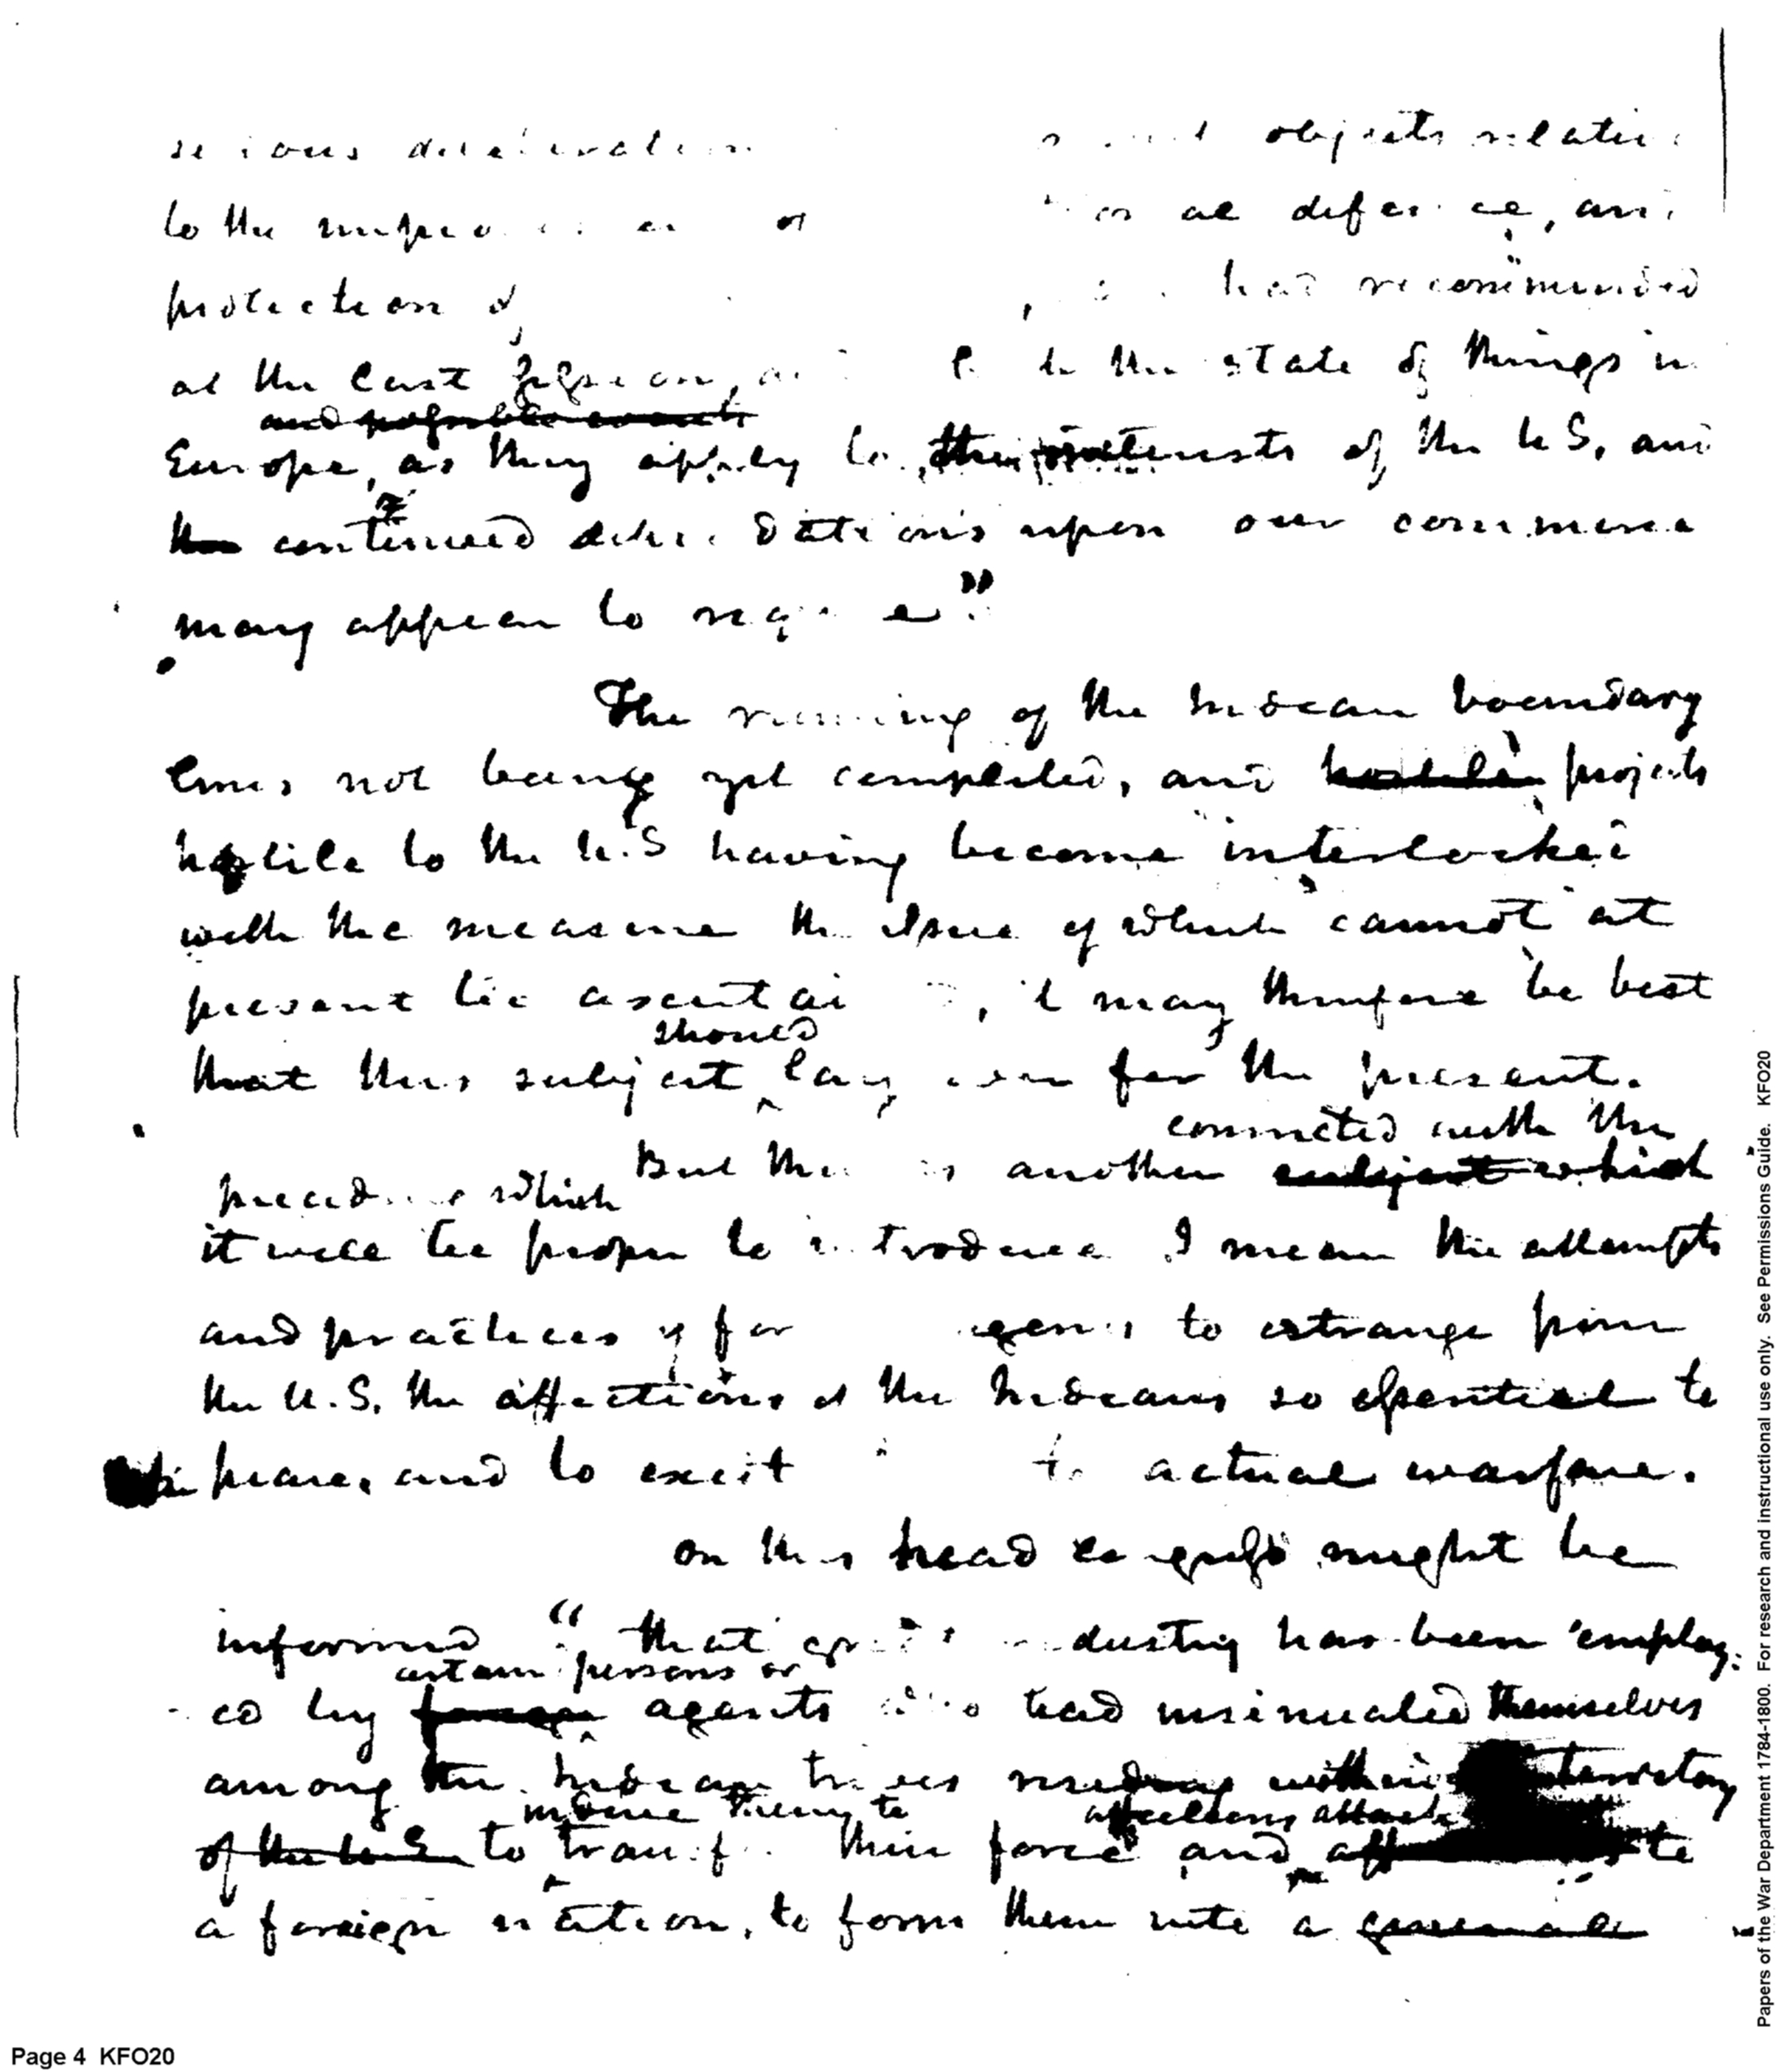 serious deliberation objects relative
to the of defence, and
protection of had recommended
at the last session, to the state of things in
and possible events
Europe, as they apply to the interests of the U S, and
the continued depredations upon our commerce
may appear to require"
The running of the Indian boundary
lines not being yet completed, and hostile projects
hostile to the U.S having become interlocked
with the measure the issue of which cannot at
present be ascertai , it may therefore be best
should
that this subject lay over for the present.
connected with the
But there is another subject which
preceding which
it will be proper to introduce I mean the attempts
and practices of for agents to estrange from
the U.S. the affections of the Indians so essential to
peace, and to excit to actual warfare.
on this head congress might be
informed " that great industry has been employ:
certain persons or
ed by foreign agents who had insinuated themselves
among the Indian tribes residing within territory
induce them to affections attach
of the U S to transf their force and aff to
a foreign nation, to form them into a general
Page 4 KFO20
Papers of the War Department 1784-1800. For research and instructional use only. See Permissions Guide. KFO20